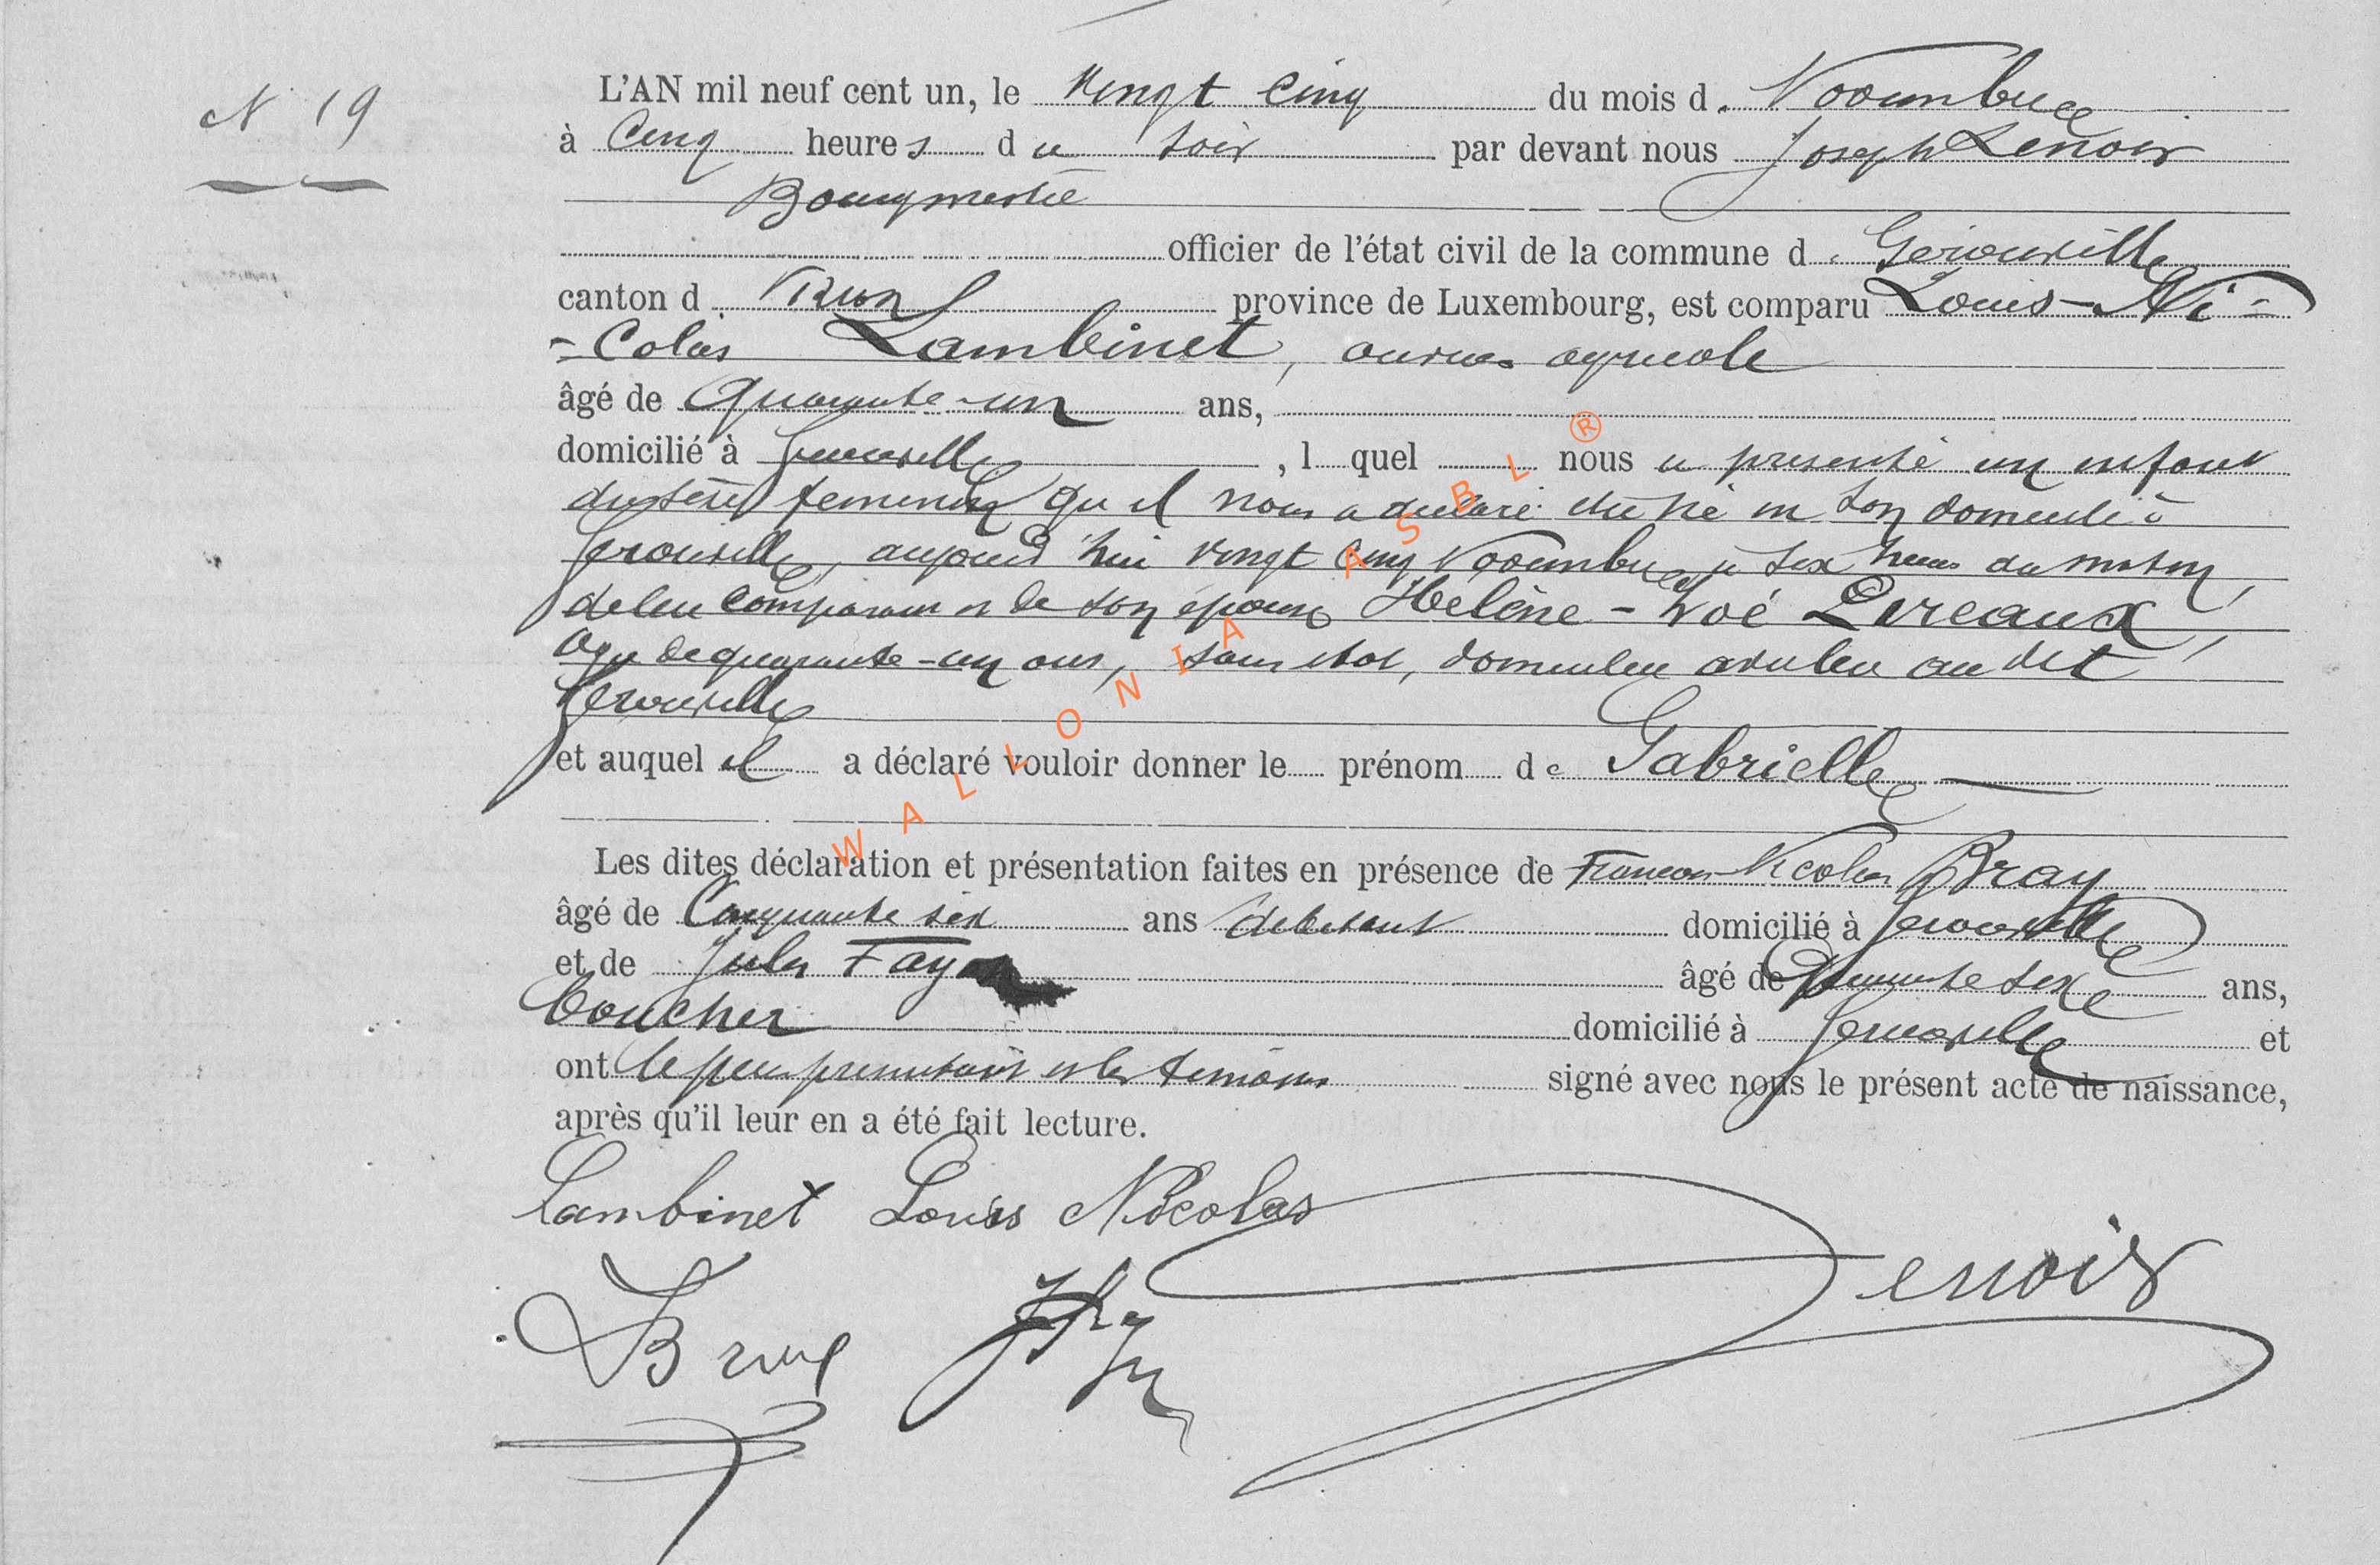 N 19
L'AN mil neuf cent un, le vingt cinq du mois de Novembre
à Cinq heures du soir par devant nous Joseph Lenoir
Bourgmestre
officier de l'état civil de la commune de Gérouville
canton d Virton province de Luxembourg, est comparu Louis-Ni=
=colas Lambinet, ouvrier agricole
âgé de quarante-un ans,
domicilié à Gérouville, l quel nous a présenté un enfant
du sexe féminin qu'il nous a déclaré être né en son domicile à
Gérouville, aujourd'hui vingt cinq Novembre à six heures du matin,
de lui comparant et de son épouse Hélène-Zoé Lireaux,
âgée de quarante-un ans, sans état, domiciliée avec lui au dit
Gérouville
et auquel il a déclaré vouloir donner le prénom de Gabrielle
Les dites déclaration et présentation faites en présence de François-Nicolas Bray
âgé de Cinquante six ans débitant domicilié à Gérouville
et de Jules Fay âgé de quarante six ans,
boucher domicilié à Gérouville et
ont le père présentant et les témoins signé avec nous le présent acte de naissance,
après qu'il leur en a été fait lecture.
Lambinet Louis Nicolas
Lenoir
Bray
WALLONIA ASBL ®